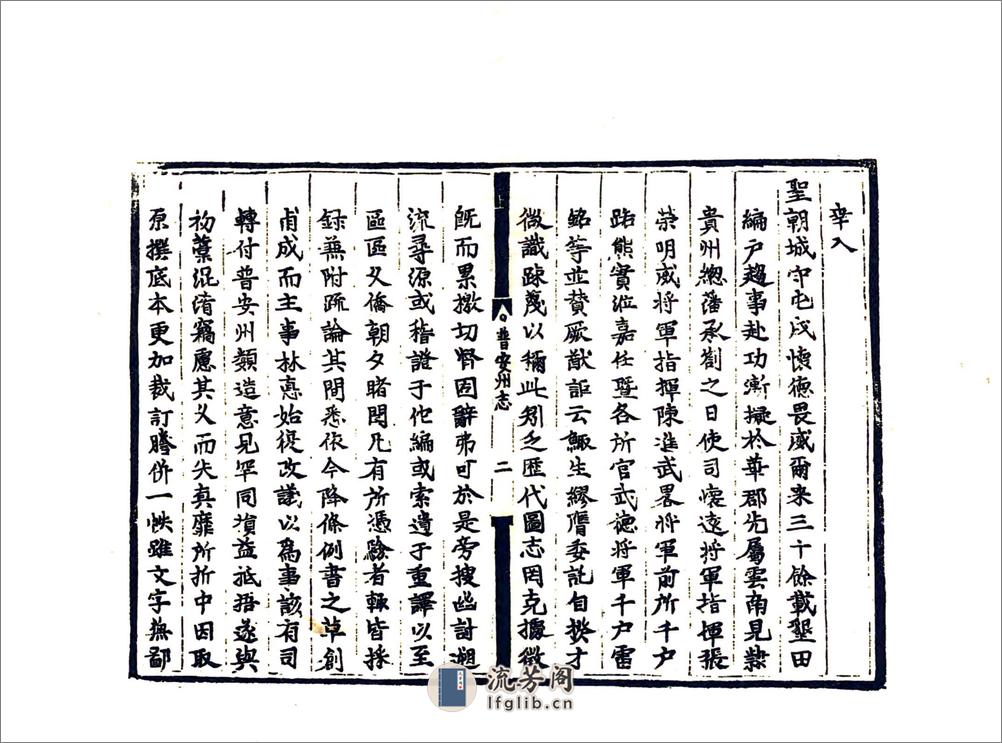 幸入
聖朝城守屯戍懷德畏威爾来三十餘載墾田
編户趨事赴功漸擬於華郡先屬雲南見隸
貴州緫藩承劄之日使司懷遠将軍指揮張
榮明威将軍指揮陳進武畧将軍前所千户
路熊實涖嘉任暨各所官武德将軍千户雷
銘等並賛厥猷詎云鯫生繆膺委託自揆才
微識踈蔑以稱此矧乏歴代圖志罔克據徴
普安州志
二
既而累檄切督固辭弗可於是旁搜幽討溯
流尋源或稽證于他編或索遺于重譯以至
區區乂僑朝夕睹聞凡有所憑驗者輙皆採
録兼附疏論其間悉依今降條例書之草創
甫成而主事林惪始復改議以為事該有司
轉付普安州顏造意見罕同損益抵捂遂與
初藁混淆竊慮其乂而失真靡所折中因取
原撰底本更加裁訂謄併一帙雖文字蕪鄙
流芳阁
lfglib.cn